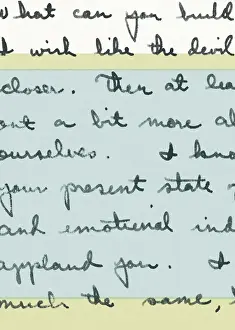 what can you build
I wish like the devil
closer. Then at lea
out a bit more al
ourselves. I kno
your present state
and emotional ind
applaud you. I
much the same,